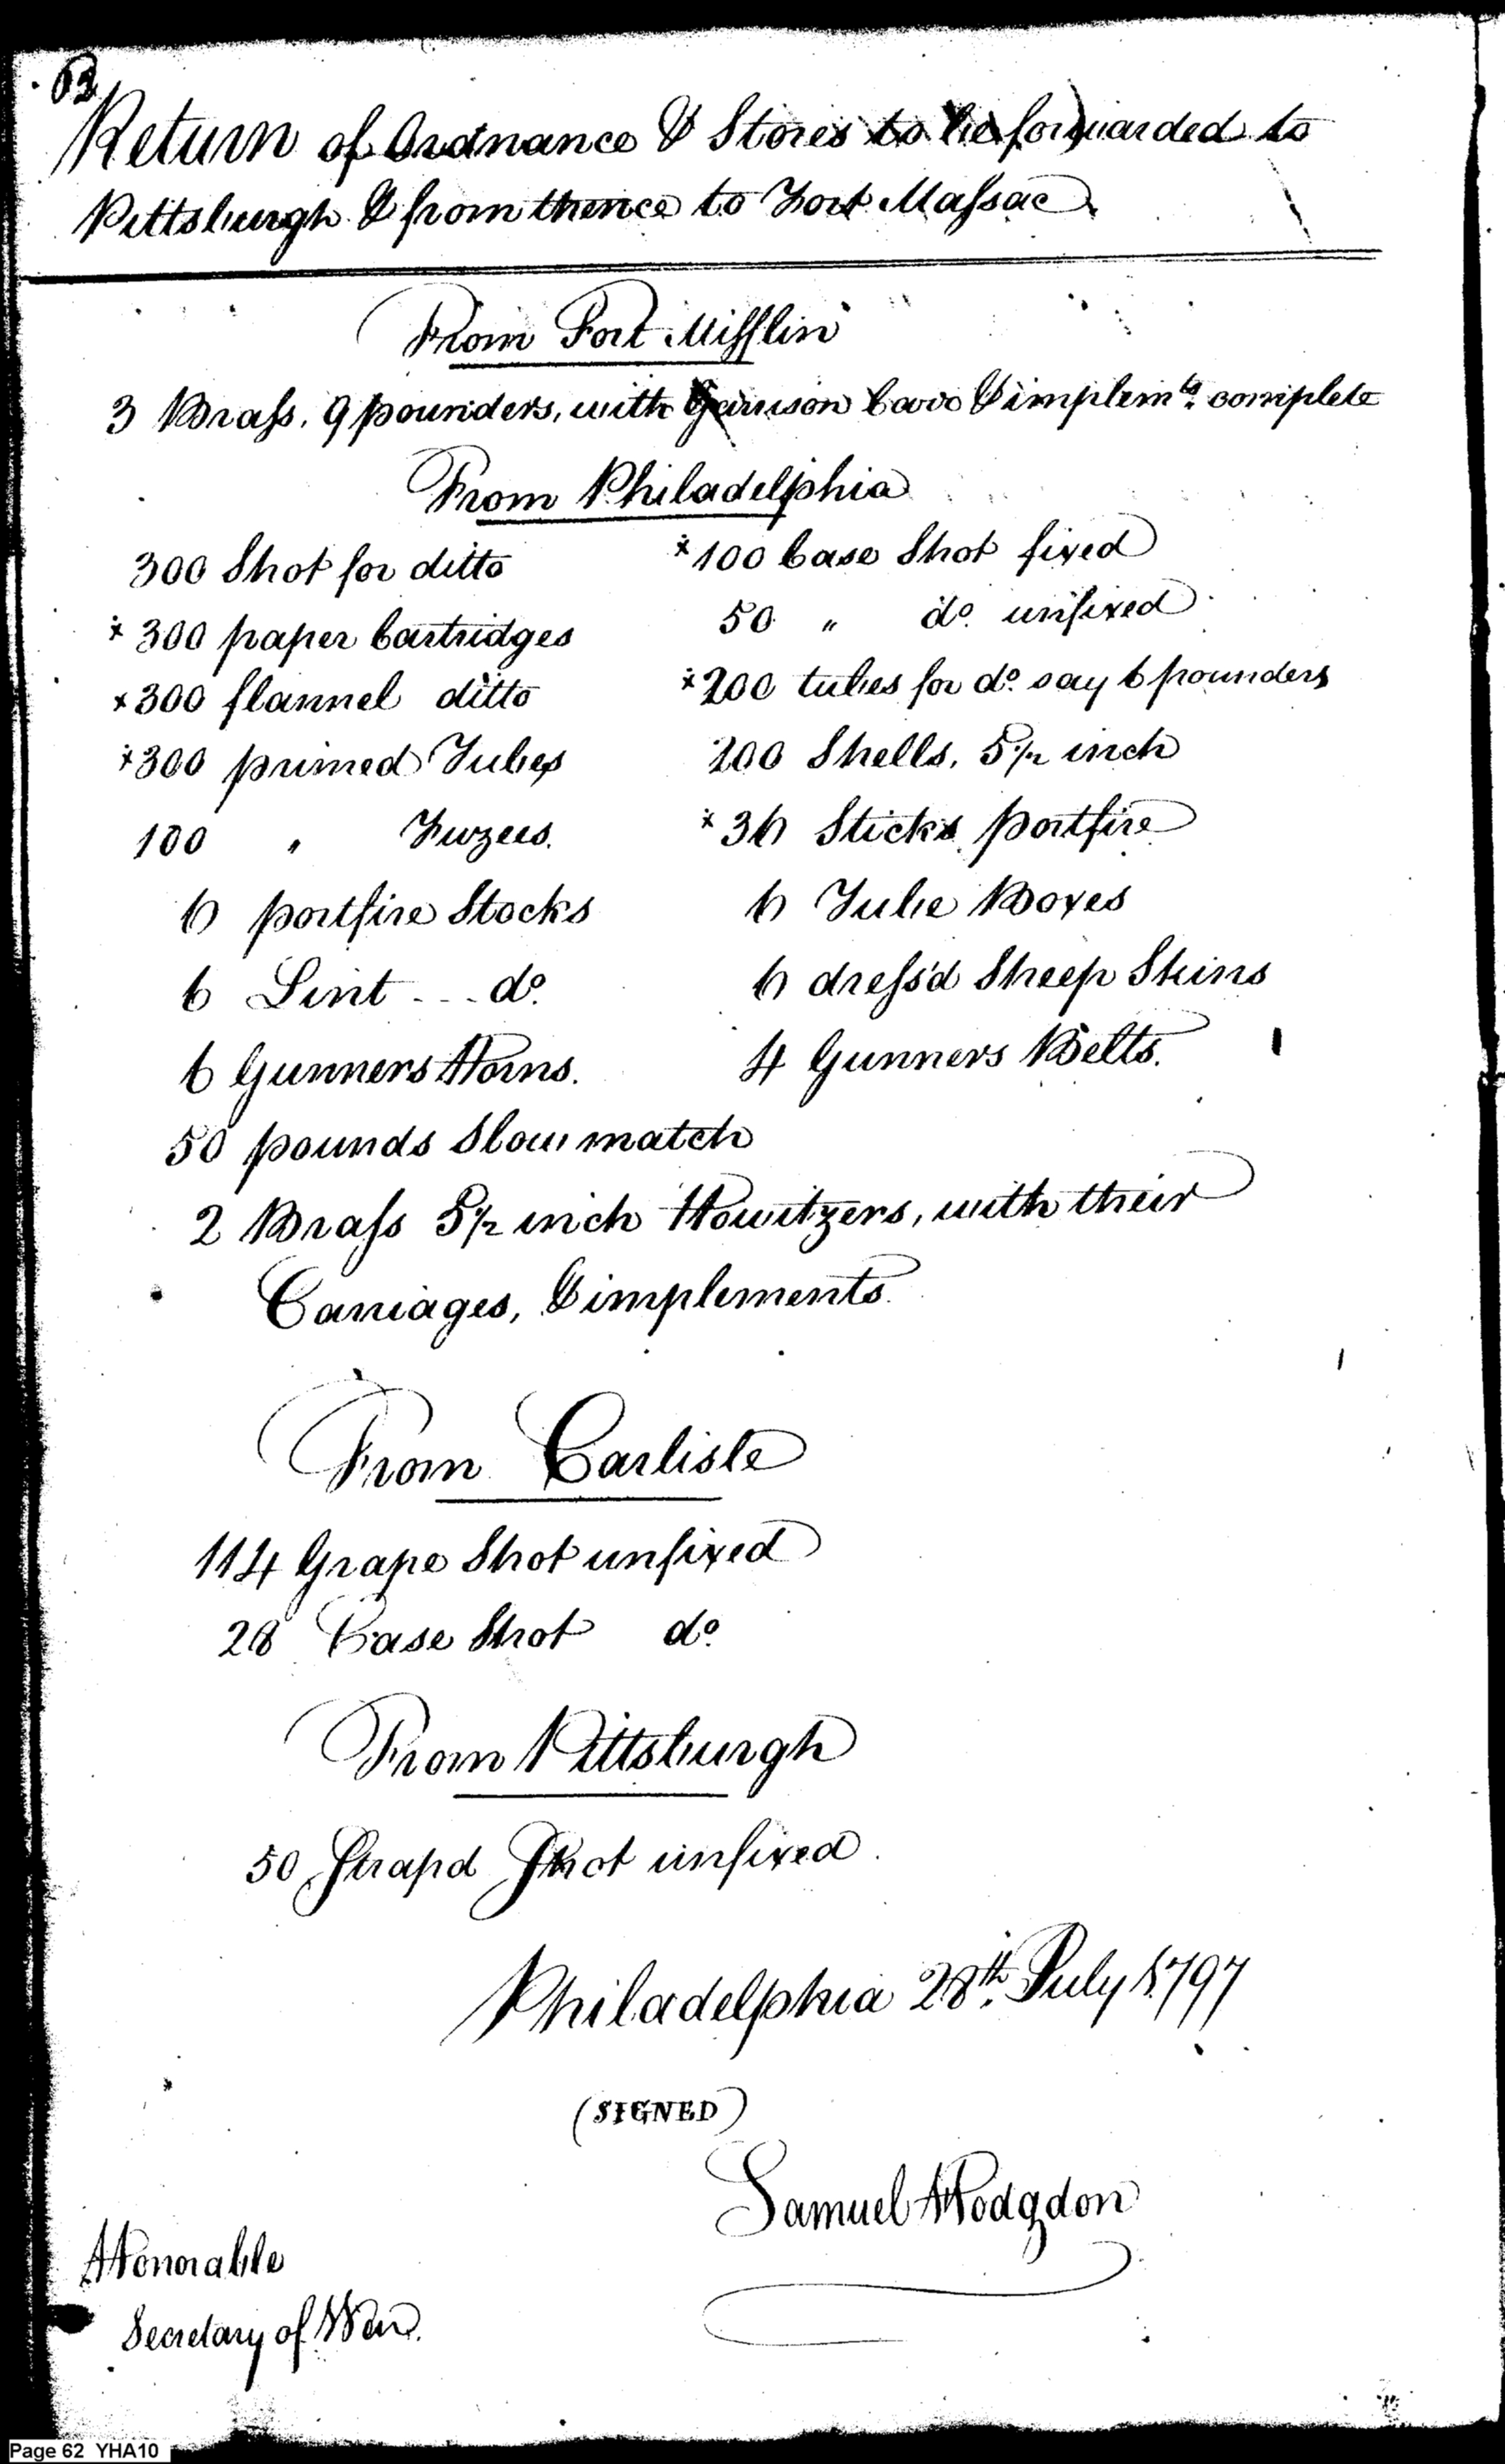 B
Return of Ordnance & Stores to be forwarded to
Pittsburgh & from thence to Fort Massac
From Fort Mifflin
3 Brass, 9 pounders, with Garrison Carr. & implemts. complete
From Philadelphia
300 Shot for ditto
x 300 paper Cartridges
x 300 flannel ditto
x 300 primed Tubes
100 " Fuzees.
6 portfire Stocks
6 Lint - - - do.
6 Gunners Horns.
x 100 Case Shot fixed
50 " do. unfixed
x 200 tubes for do. say 6 pounders
200 Shells, 5 1/2 inch
x 36 Sticks portfire
6 Tube Boxes
6 dress'd Sheep Skins
4 Gunners Belts.
50 pounds Slow match
2 Brass 5 1/2 inch Howitzers, with their
Carriages, & implements.
From Carlisle
114 Grape Shot unfixed
28 Case Shot do.
From Pittsburgh
50 Strapd Shot unfixed.
Philadelphia 28th. July 1797
(SIGNED)
Samuel Hodgdon
Honorable
Secretary of War.
Page 62 YHA10